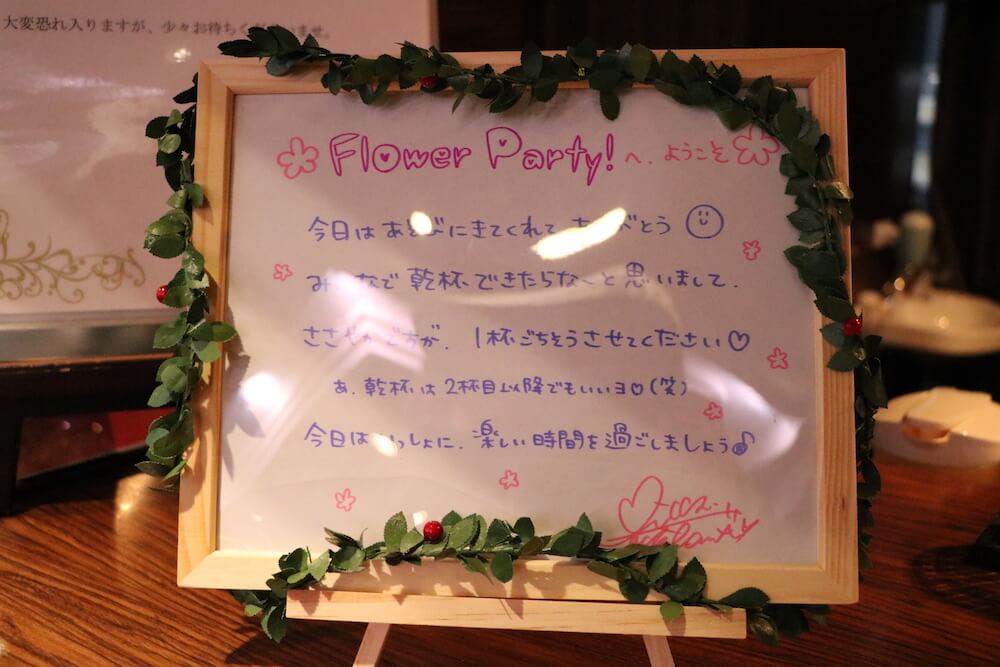 大変恐れ入りますが、少々お待ちくださいませ。
Flower Party! へ、ようこそ
今日はあそびにきてくれてありがとう
みんなで乾杯できたらなーと思いまして、
ささやかですが、1杯ごちそうさせてください♡
あ、乾杯は2杯目以降でもいいヨ♡(笑)
今日はいっしょに、楽しい時間を過ごしましょう♪